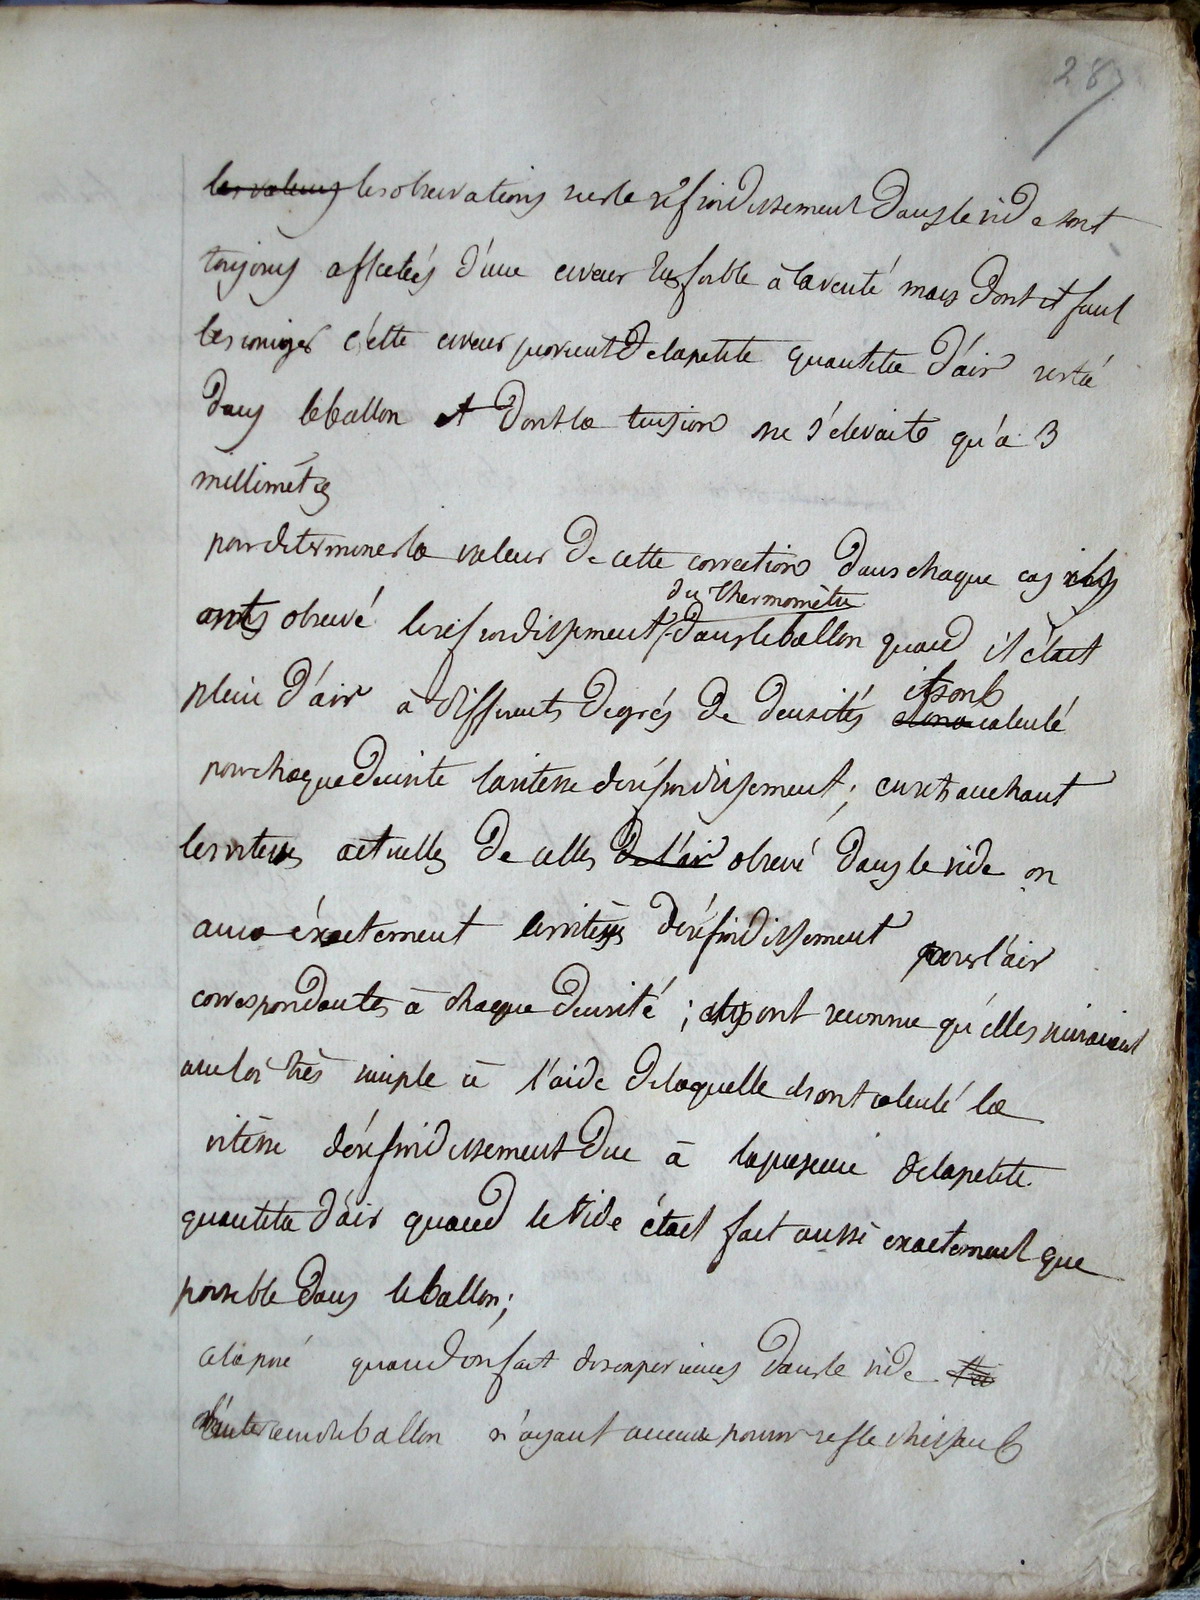 287
les valeurs les observations sur le réfroidissement dans le vide sont
toujours affectées d'une erreur très foible à la verité mais dont it faut
les corriger cette erreur provient de la petite quantitée d'air resté
dans le ballon et dont la tension ne s'elevaite qu'a 3
millimètres
pour determiner la valeur de cette correction dans chaque cas ils
du thermomètre
onts observé le refroidissement dans le ballon quand il était
plein d'air à differents degrés de densités ils ont calculé
pour chaque densite la vitesse de réfroidissement ; en retranchant
les vitesses actuelles de celles de l'air observé dans le vide on
aura éxactement les vitesses de réfroidissement pour l'air
correspondantes à chaque densité ; ils ont reconnue qu'elles suivaient
une loi très simple à l'aide de laquelle ils ont calculé la
vitèsse de réfroidissement due à la présence de la petite
quantitée d'air quand le vide était fait aussi exactement que
possible dans le ballon ;
cela posé quand on fait des experiences dans le vide
l'interieur du ballon n'ayant aucun pouvoir reflechissant